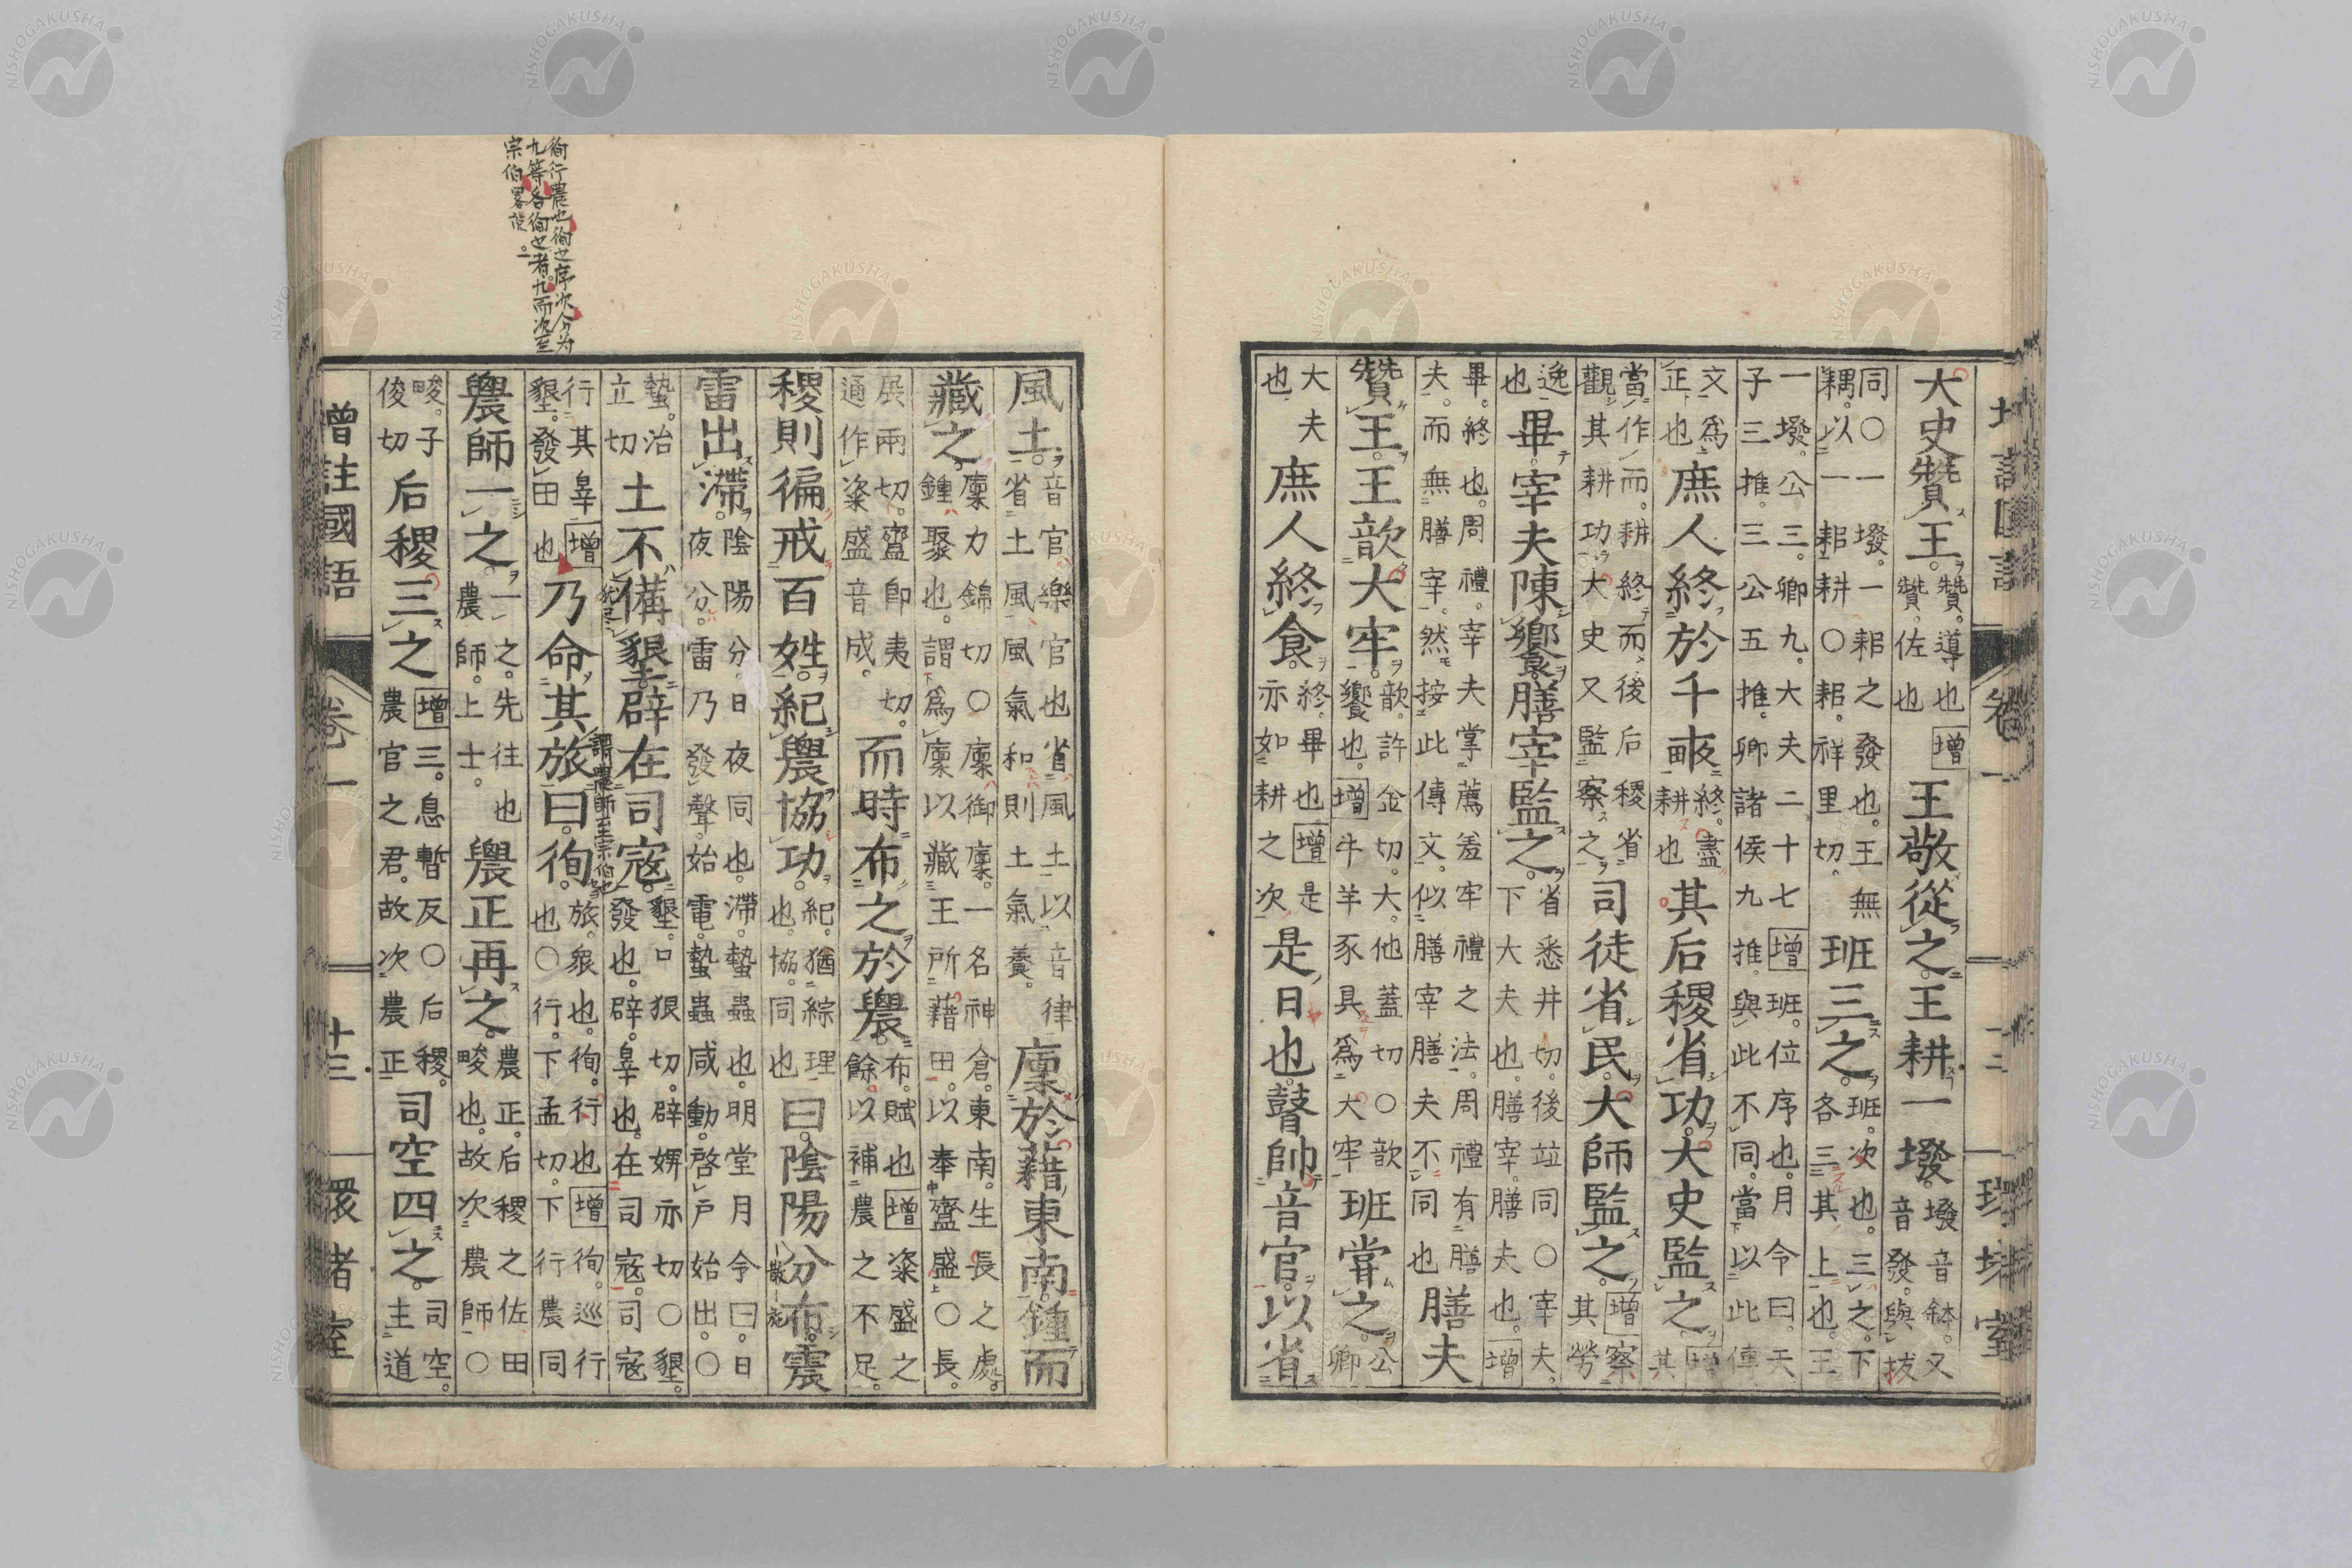 大史贊王。贊。導也增贊佐也王敬從之。王耕一墢。墢音鉢。又音發。與拔
同〇一墢。一耜之發也。王無耦。以一耜耕〇耜。祥里切。班三之。班。次也。三之。下各三其上也。王
一墢。公三。卿九。大夫二十七增班。位序也。月令曰。天子三推。三公五推。卿諸侯九推。與此不同。當以此傳
文爲正也庶人終於千畝終。盡耕也其后稷省功。大史監之。增其
當作而。耕終而。後后稷省觀其耕功。大史又監察之。司徒省民。大師監之。增察其勞
逸也畢。宰夫陳饗。膳宰監之。省悉井切。後竝同〇宰夫。下大夫也。膳宰。膳夫也。增
畢。終也。周禮。宰夫掌薦羞牢禮之法。周禮有膳夫。而無膳宰。然按此傳文。似膳宰膳夫不同也膳夫
贊王。王歆大牢。歆。許金切。大。他蓋切〇歆饗也。增牛羊豕具爲大牢班嘗之。公卿
大夫也庶人終食。終。畢也增是亦如耕之次是日也。瞽帥音官。以省
風土。音官。樂官也省風土以音律省土風風氣和則土氣養。廩於藉東南。鍾而
藏之。廩力錦切〇廩御廩。一名神倉。東南。生長之處。鍾聚也。謂爲廩以藏王所藉田。以奉齍盛〇長。
展兩切。齍卽夷切。通作粢盛音成。而時布之於農。布。賦也增粢盛之餘。以補農之不足。
稷則徧戒百姓。紀農協功。紀。猶綜理也。協。同也曰。陰陽分布。震
雷出滯。陰陽分。日夜同也。滯。蟄蟲也。明堂月令曰。日夜分。雷乃發聲。始電。蟄蟲咸動。啓戶始出。〇
蟄。治立切土不備墾。辟在司寇。墾。口狠切。辟婢亦切〇墾。發也。辟。辠也。在司寇。司寇
行其辠增墾。發田也乃命其旅曰。徇。旅。衆也。徇。行也增徇。巡行也〇行。下孟切。下行農同
農師一之。一之。先往也農師。上士。農正再之。農正。后稷之佐田畯也。故次農師〇
畯。子俊切后稷三之增三。息暫反〇后稷。農官之君。故次農正司空四之。司空。主道
增註國語 卷一 十三 環堵室
徇行農也徇也序次分为
九等各徇也者。九而次至
宗伯畧説。
NISHOGAKUSHA